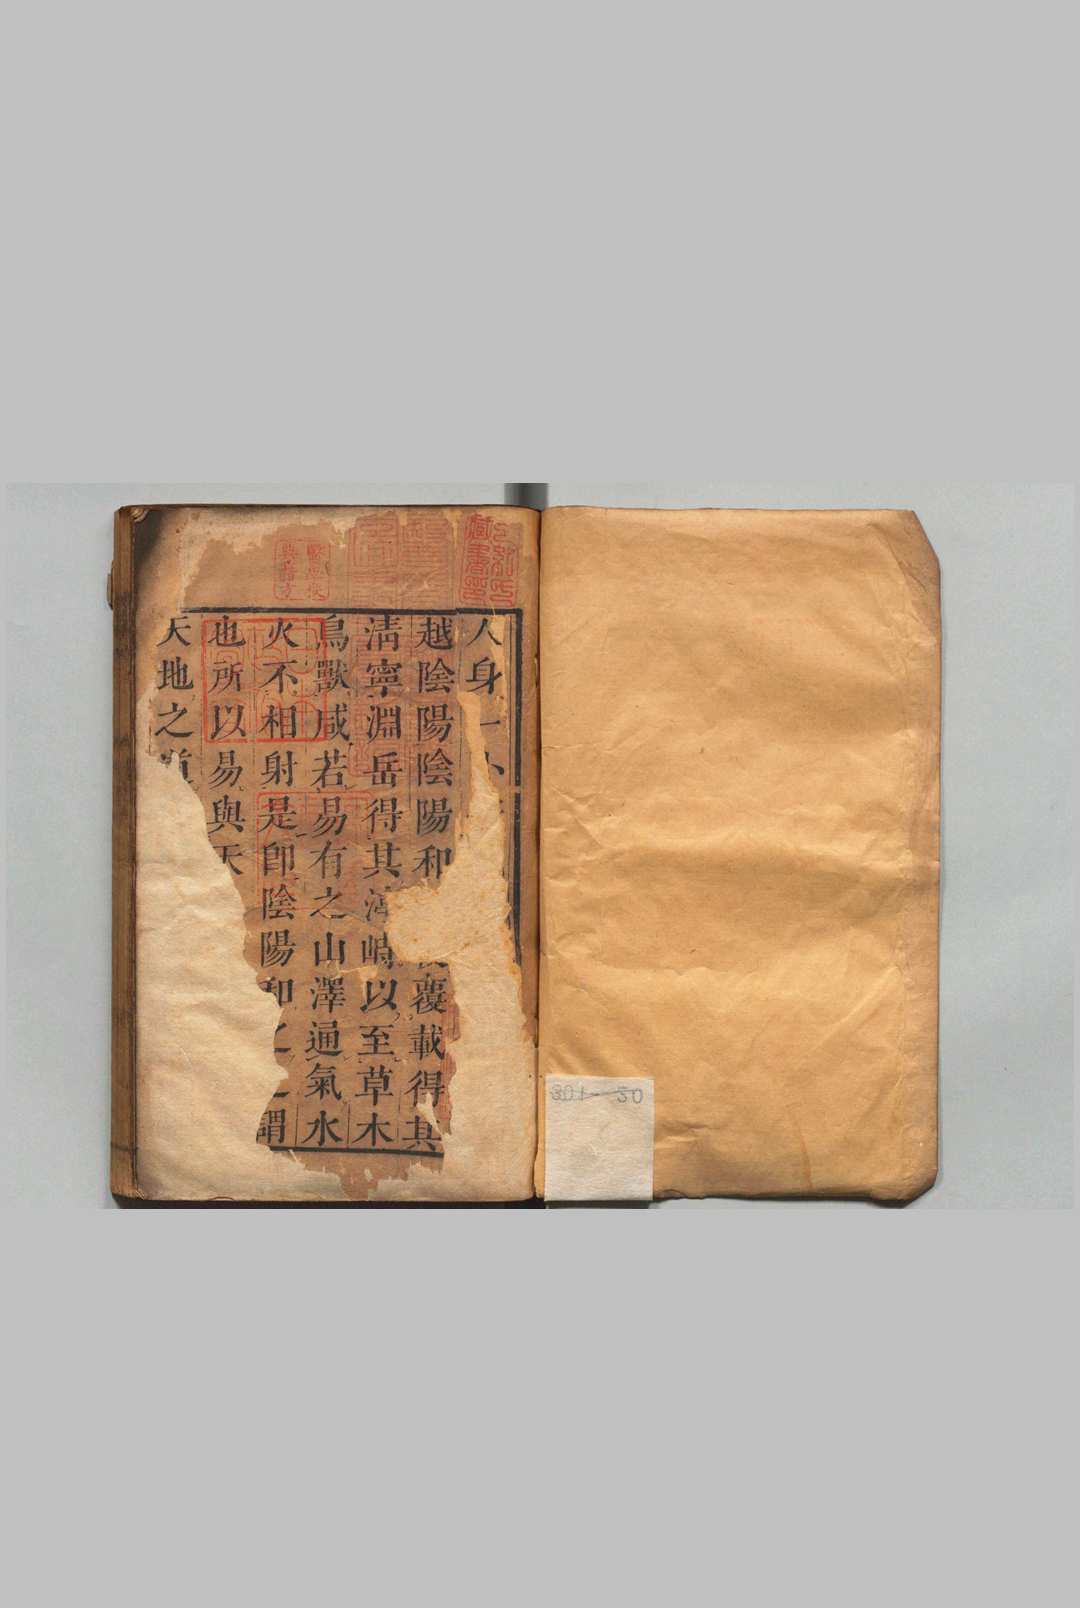 人身一小
越陰陽陰陽和覆載得其
清寧淵岳得其渟峙以至草木
鳥獸咸若易有之山澤通氣水
火不相射是卽陰陽和之謂
也所以易與天
天地之道
藏書
301-20